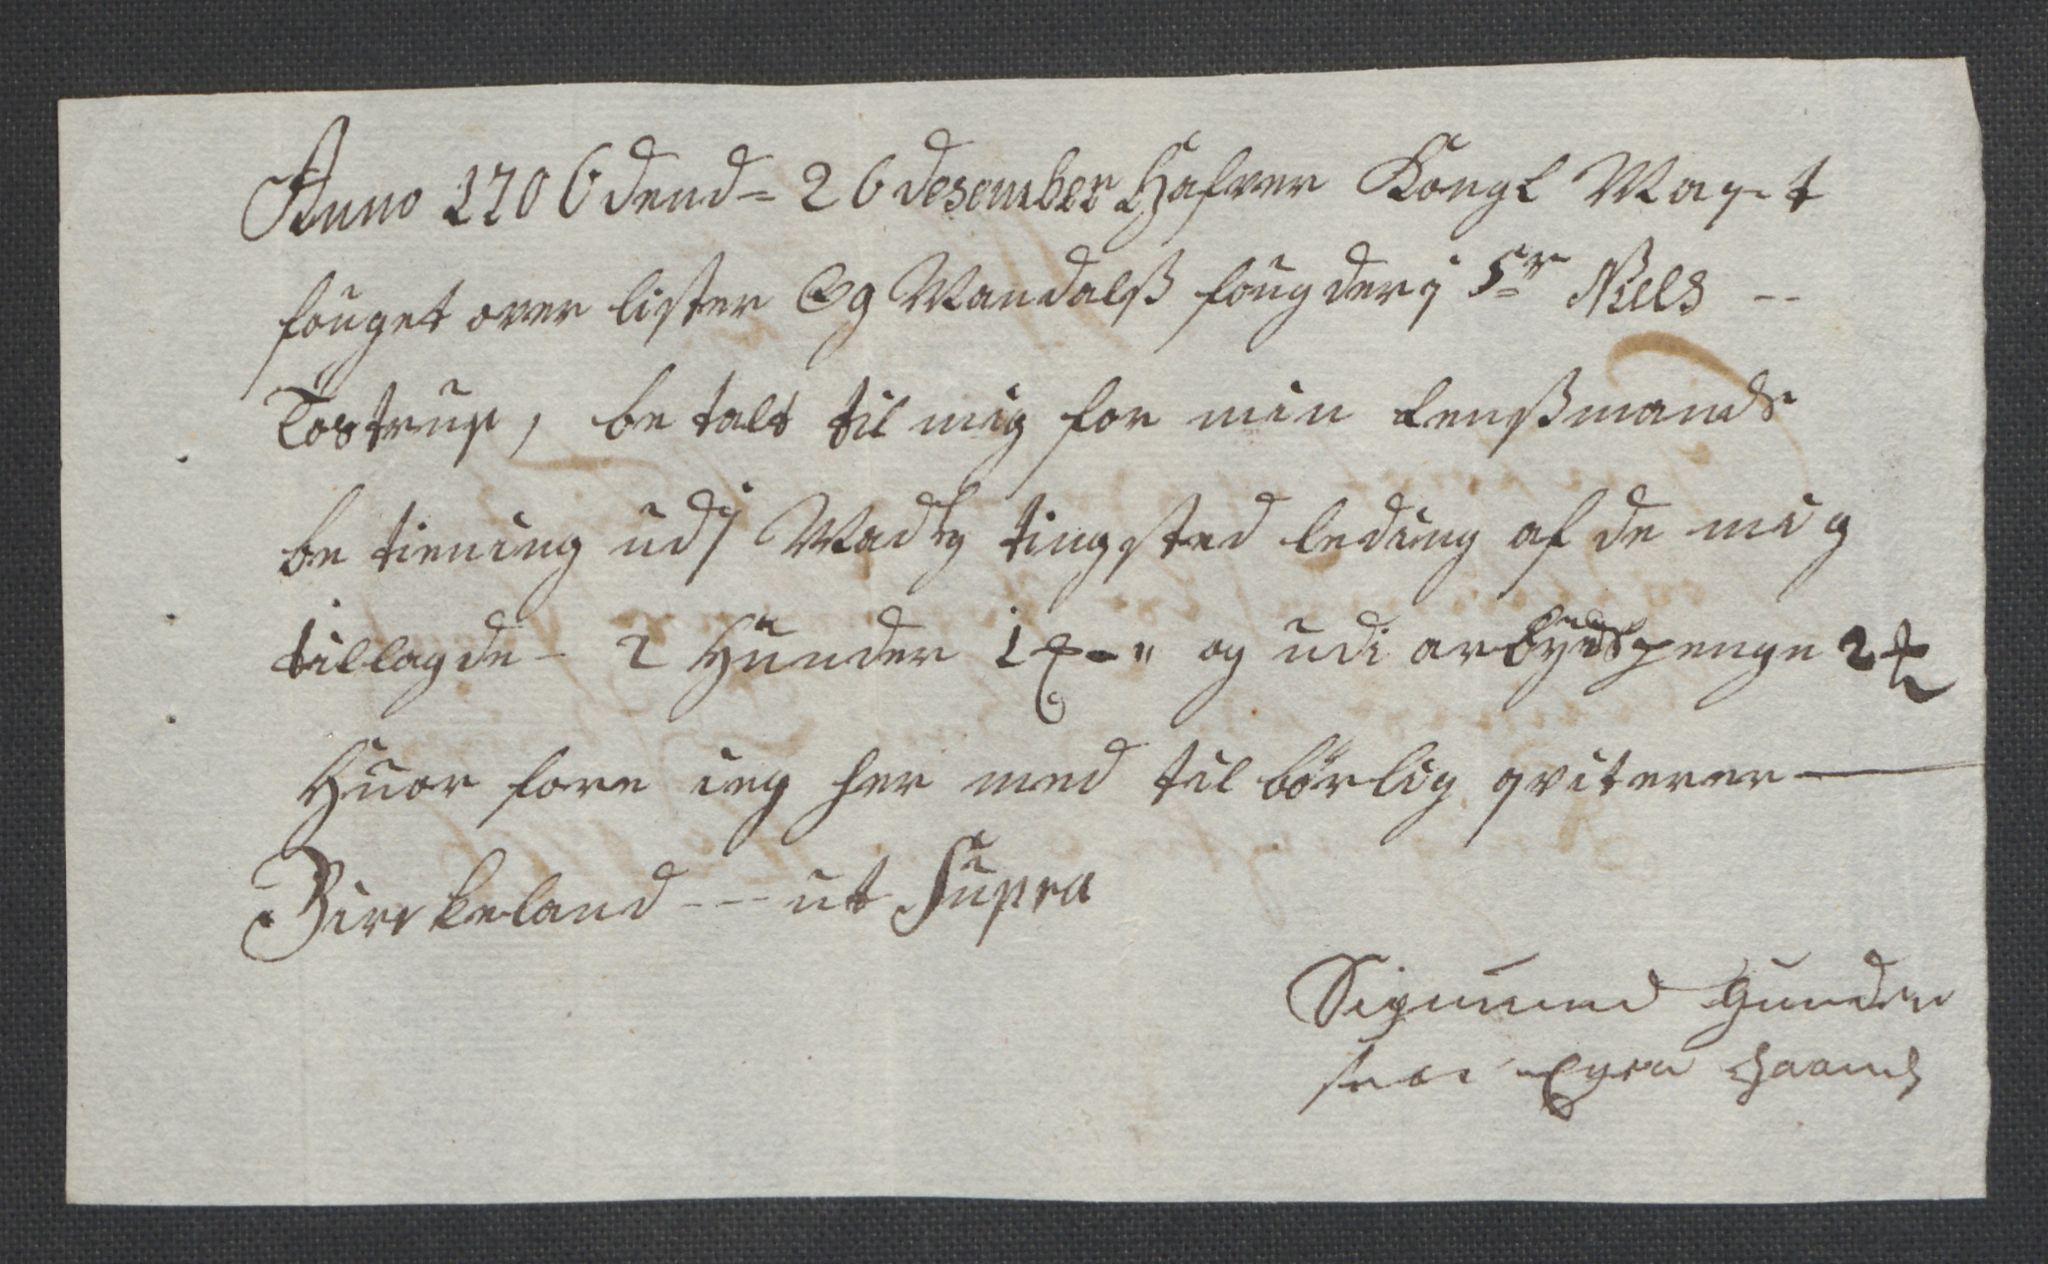 Anno 1706 dend = 26 desember Hafver Kongl May-t
fouget over lister Og Mandalß fougderj Sr Niels --
Tostrup, be talt til mig for min Lenßmands
be tiening udj tingsted leding af de mig
tillagde - 2 Hunder 1 og udi arbydspenge 2
Huor fore ieg her med til börlig qviterer —
Birckeland --- ut Supra
Sigmund Gunder
sen Egen Haand